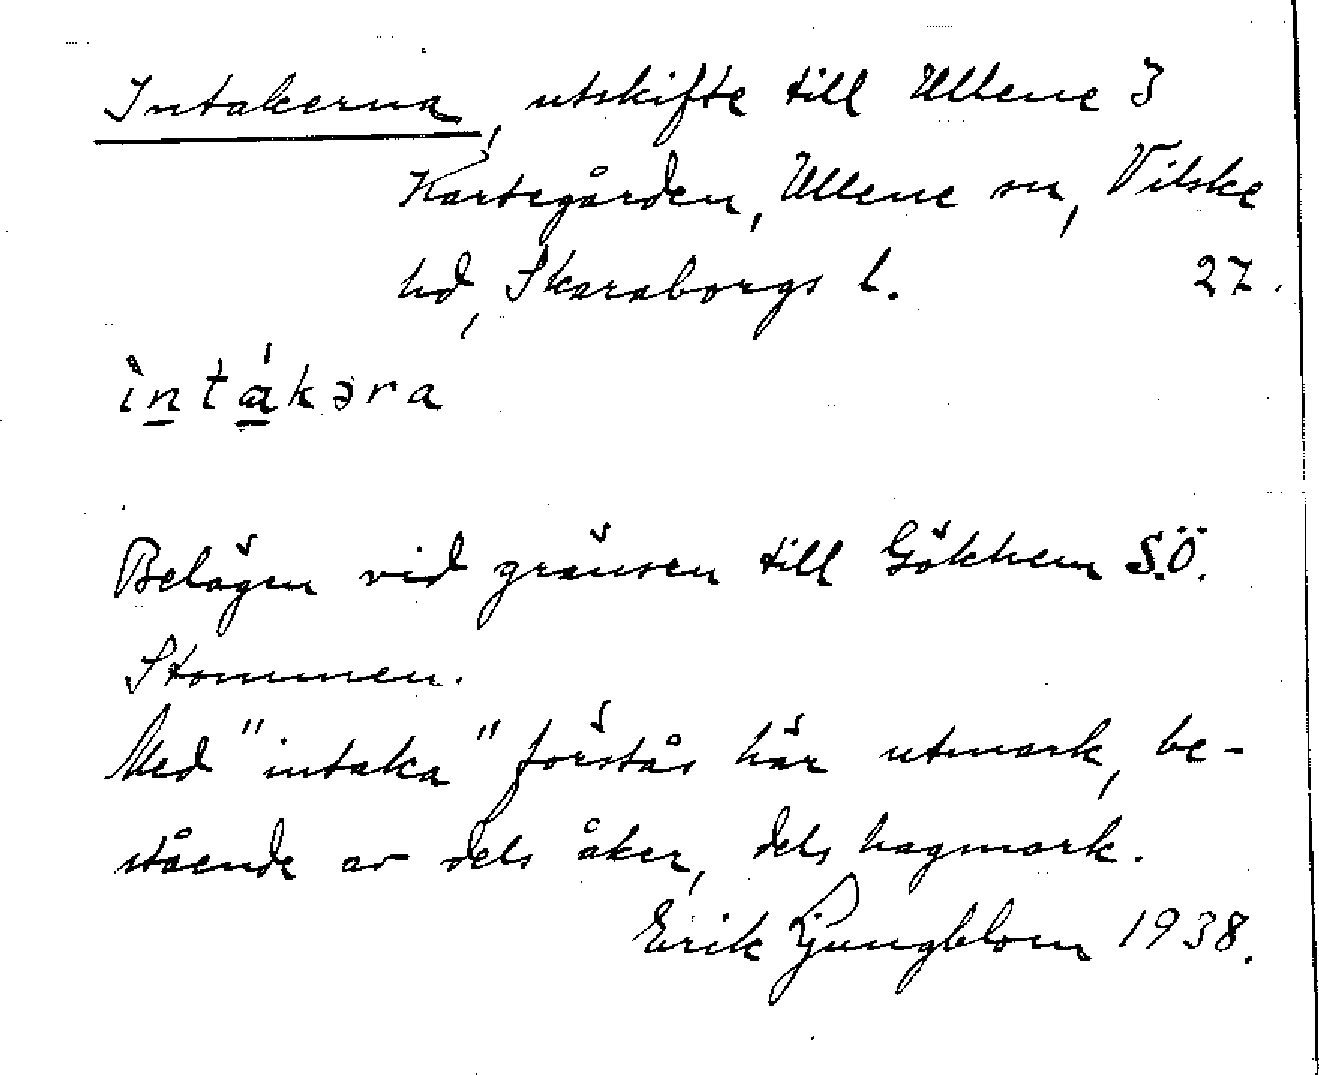 Intakerna, utskifte till Ullene 3
Kartegården, Ullene sn, Vilske
hd, Skaraborgs l. 27.
ìntákəra
Belägen vid gränsen till Gökhem S.Ö.
Stommen.
Med "intaka" förstås här utmark, be-
stående av dels åker, dels hagmark.
Erik Ljungblom 1938.